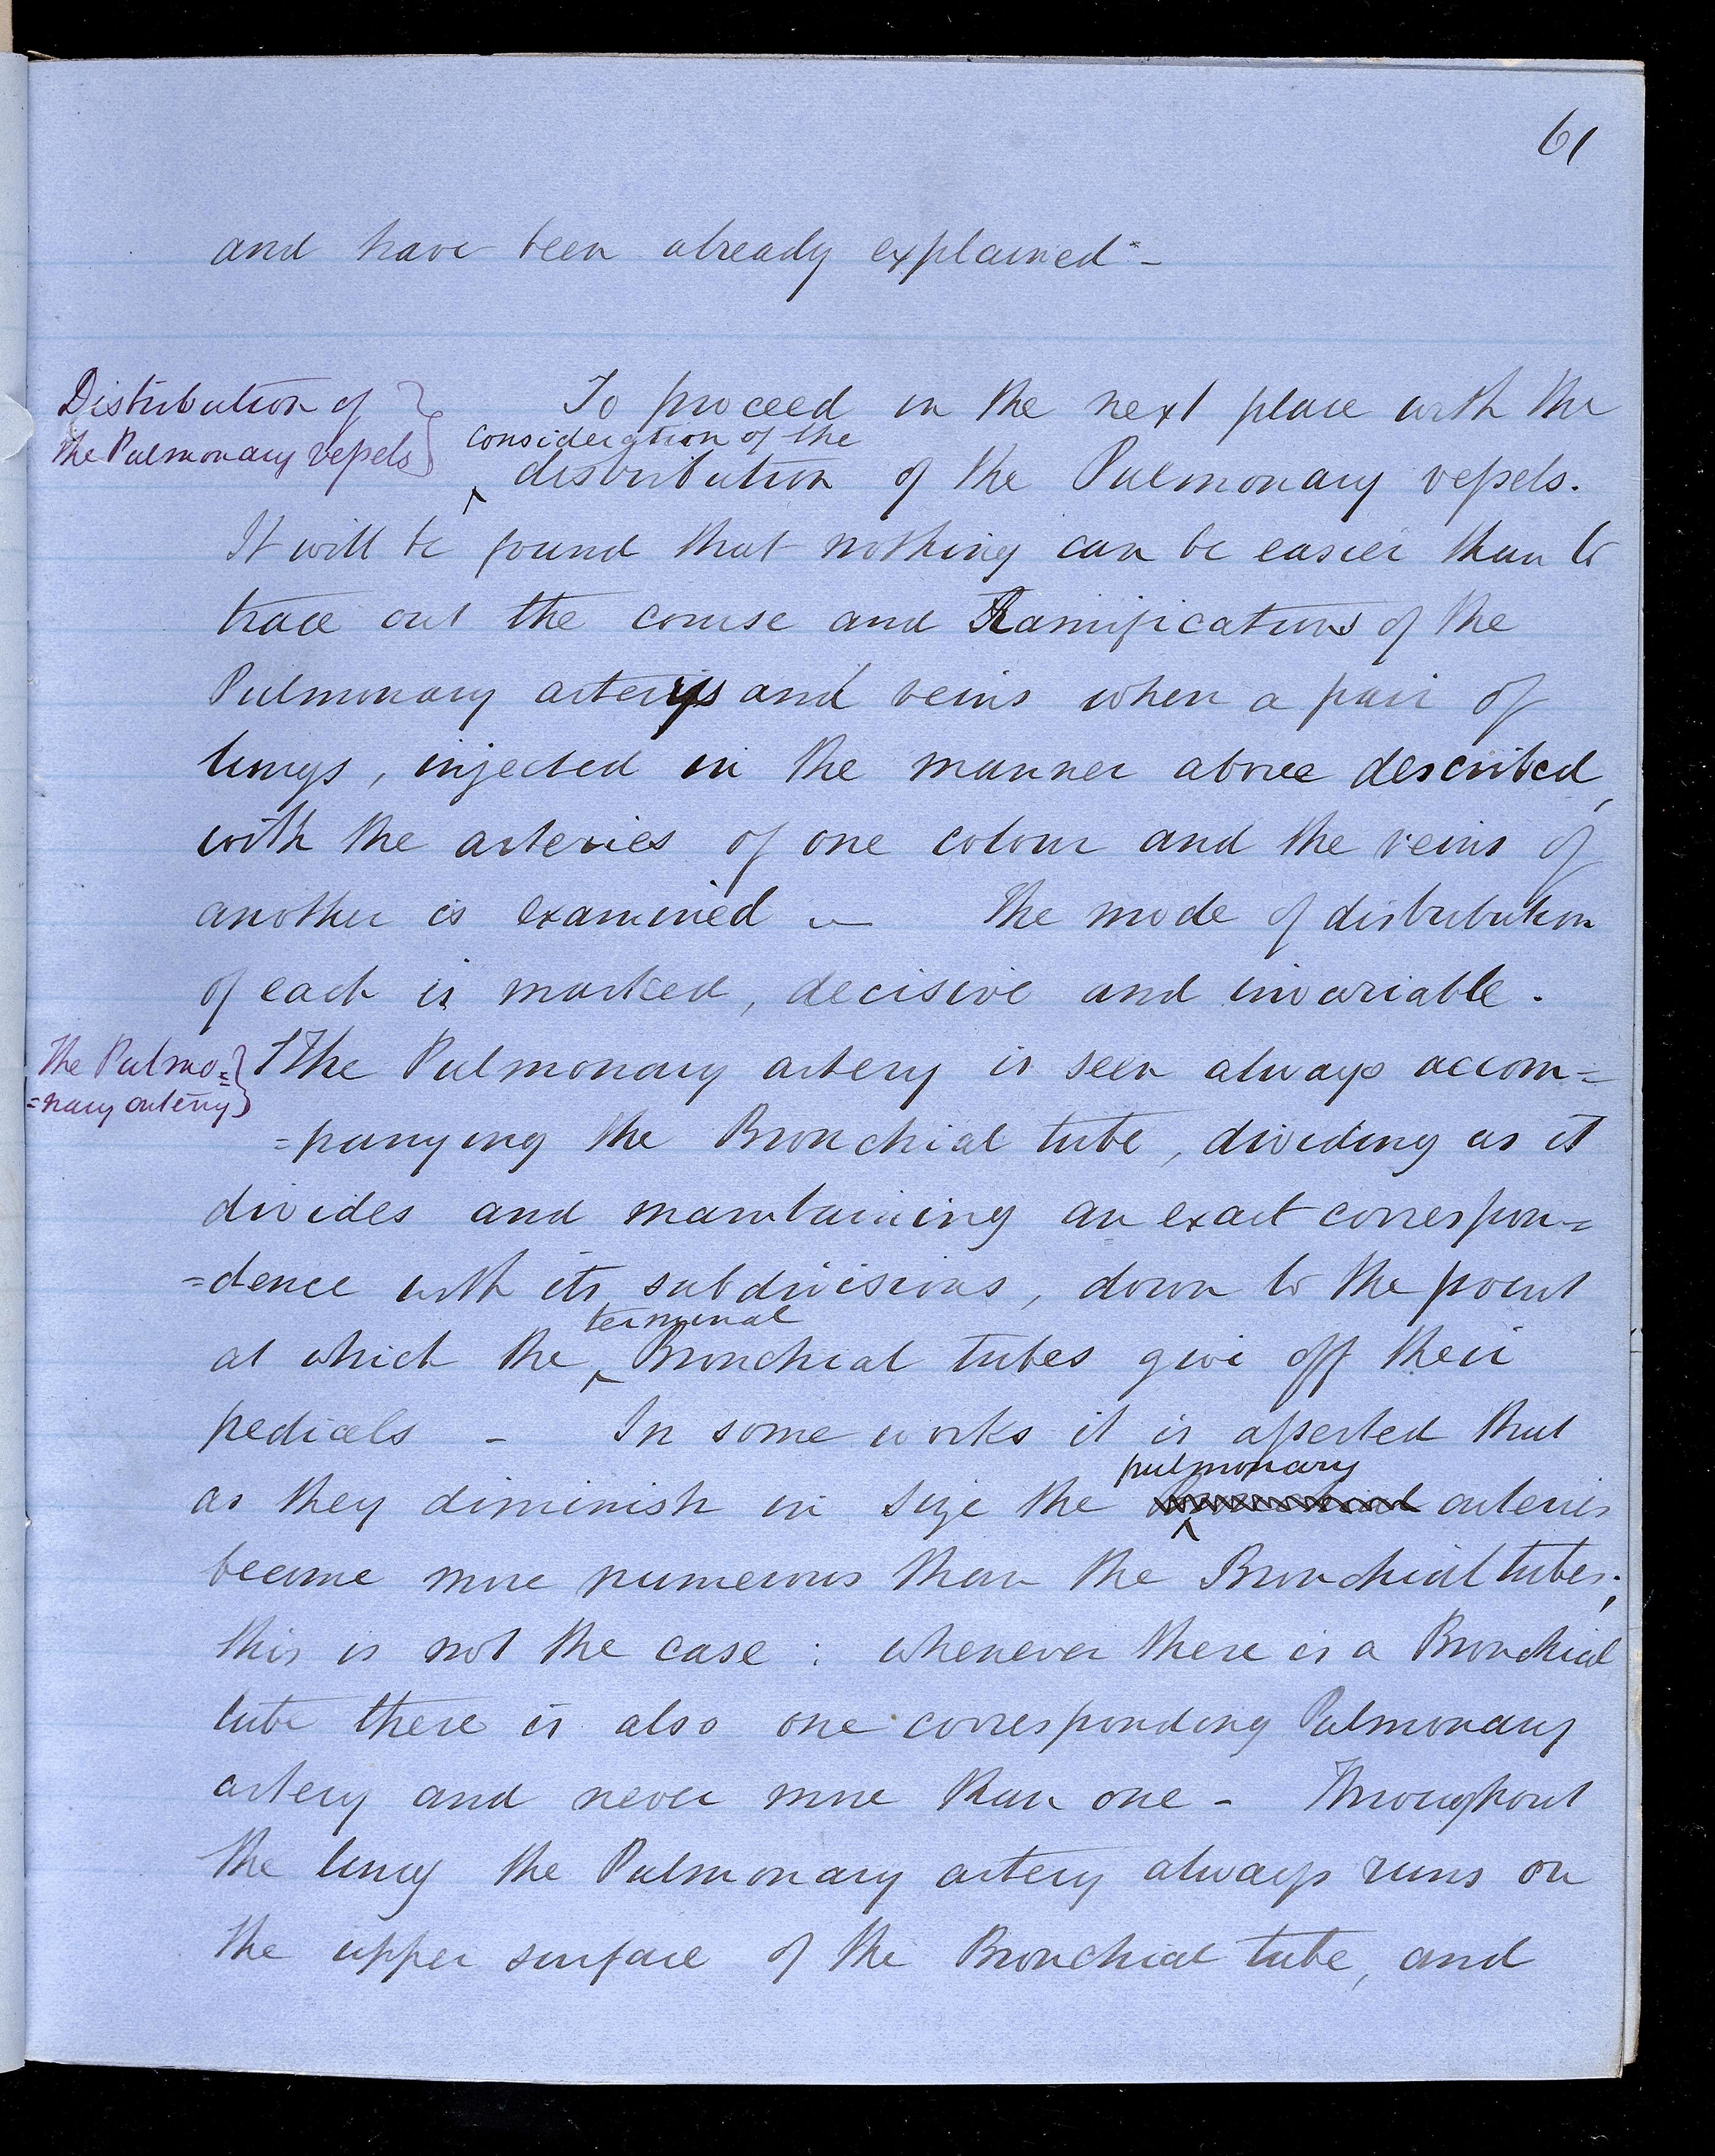 61
and have been already explained -
Distribution of
the Pulmonary vessels
To proceed in the next place with the
consideration of the
distribution of the Pulmonary vessels.
It will be found that nothing can be easier than to
trace out the course and Ramifications of the
Pulmonary arterys and veins when a pair of
lungs, injected in the manner above described,
with the arteries of one colour and the veins of
another is examined - The mode of distribution
of each is marked, decisive and invariable.
The Pulmo=
=nary artery
The Pulmonary artery is seen always accom=
=panying the Bronchial tube, dividing as it
divides and maintaining an exact correspon=
=dence with its subdivisions, down to the point
terminal
at which the Bronchial tubes give off their
pedicels - In some works it is asserted that
pulmonary
as they diminish in size the arteries
become more numerous than the Bronchial tubes;
this is not the case : whenever there is a Bronchial
tube there is also one corresponding Pulmonary
artery and never more than one - Throughout
the lung the Pulmonary artery always runs on
the upper surface of the Bronchial tube, and